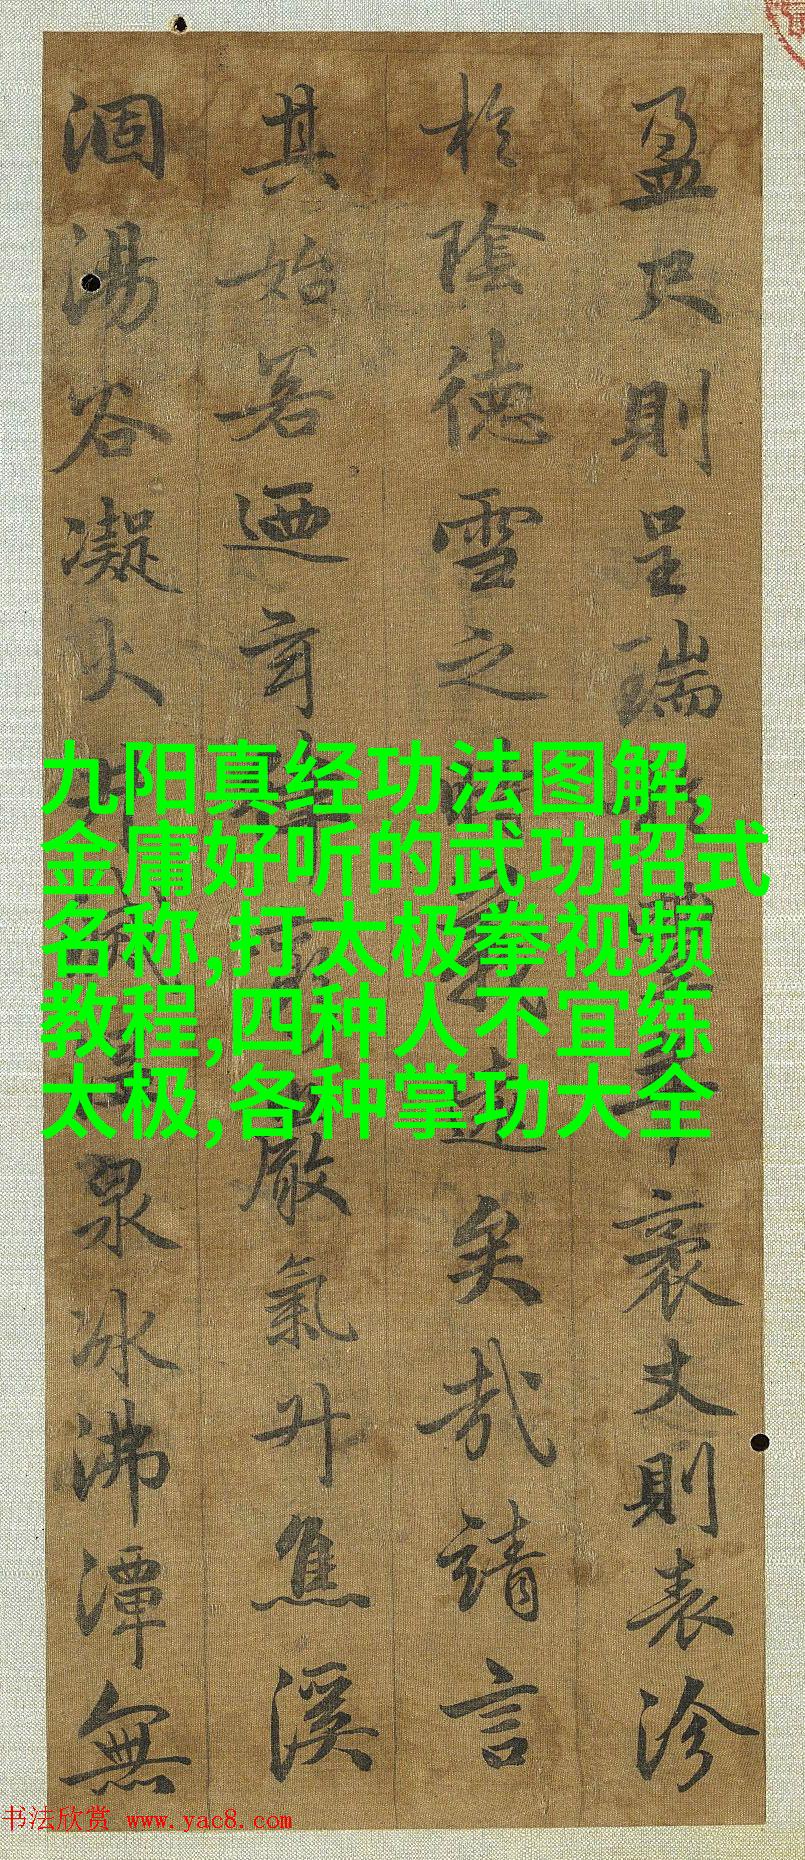 盈尺則呈瑞袤丈則表沴
於陰德雪之時遠矣哉請言
其始若迺玄律嚴氣升焦溪
涸湯谷凝火井泉冰沸潭無
九阳真经功法图解,
金庸好听的武功招式
名称,打太极拳视频
教程,四种人不宜练
太极,各种掌功大全
书法欣赏 www.yac8.com